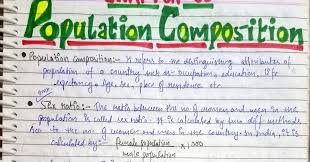 Population Composition
Population Composition:- It refers to the distinguishing attributes of
population of a country such as occupations, education, life
expectancy, Age, sex, place of residence etc.
Sex ratio:- The ratio between the no of women and men in the
population is called sex ratio. It is calculated by two diff methods.
Acc to the no of women and men in the country. In India, it is
calculated by:- female population × 1000
male population